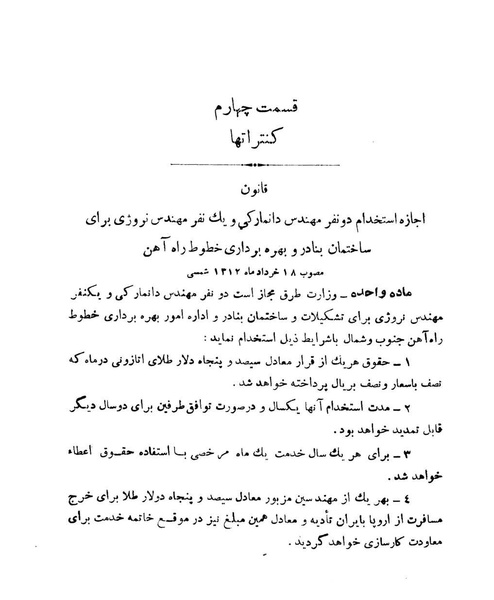 قسمت چهارم
کنتراتها
قانون
اجازه استخدام دو نفر مهندس دانمارکی و یك نفر مهندس نروژی برای
ساختمان بنادر و بهره برداری خطوط راه آهن
مصوب ۱۸ خرداد ماه ۱۳۱۲ شمسی
ماده واحده ــ وزارت طرق مجاز است دو نفر مهندس دانمارکی و یکنفر
مهندس نروژی برای تشکیلات و ساختمان بنادر و اداره امور بهره برداری خطوط
راه آهن جنوب وشمال باشرایط ذیل استخدام نماید :
۱ ــ حقوق هریك از قرار معادل سیصد و پنجاه دلار طلای اتازونی درماه که
نصف باسعار ونصف بریال پرداخته خواهد شد .
۲ ــ مدت استخدام آنها یکسال و درصورت توافق طرفین برای دوسال دیگر
قابل تمدید خواهد بود .
۳ ــ برای هر یك سال خدمت یك ماه مرخصی با استفاده حقوق اعطاء
خواهد شد .
٤ ــ بهر یك از مهندسین مزبور معادل سیصد و پنجاه دولار طلا برای خرج
مسافرت از اروپا بایران تأدیه و معادل همین مبلغ نیز در موقع خاتمه خدمت برای
معاودت کارسازی خواهد گردید .